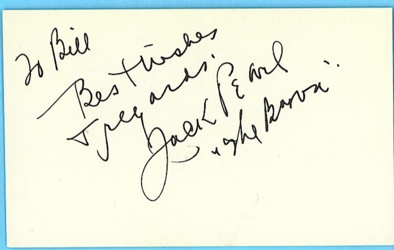 To Bill
Best Wishes
+ regards.
Jack Pearl
"The Baron"